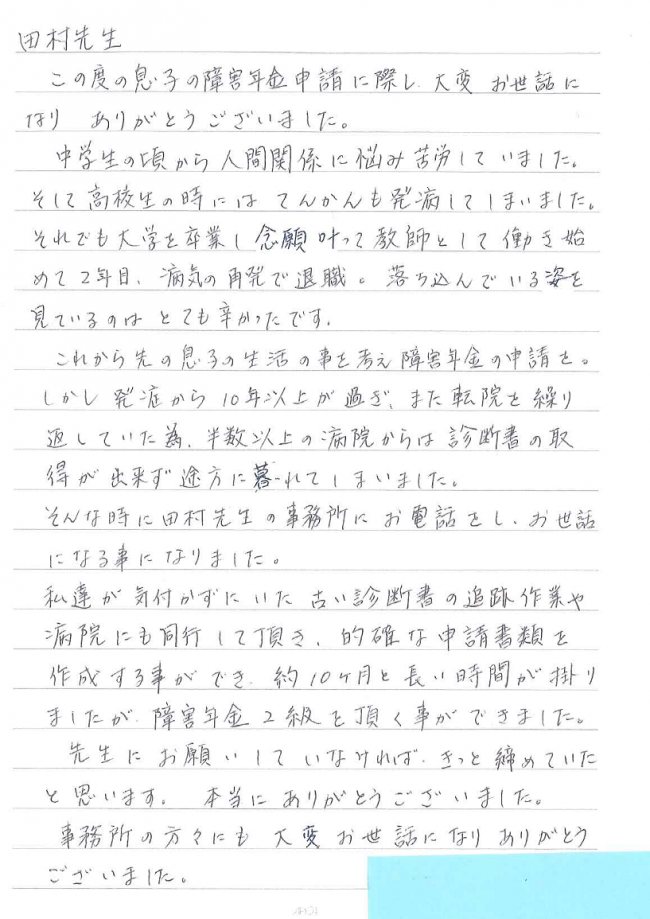 田村先生
この度の息子の障害年金申請に際し、大変 お世話に
なり ありがとうございました。
中学生の頃から人間関係に悩み苦労していました。
そして高校生の時には てんかんも発病してしまいました。
それでも大学を卒業し 念願叶って教師として働き始
めて2年目、病気の再発で退職。落ち込んでいる姿を
見ているのは とても辛かったです。
これから先の息子の生活の事を考え障害年金の申請を。
しかし 発症から10年以上が過ぎ、また転院を繰り
返していた為、半数以上の病院からは診断書の取
得が出来ず途方に暮れてしまいました。
そんな時に田村先生の事務所にお電話をし、お世話
になる事になりました。
私達が気付かずにいた古い診断書の追跡作業や
病院にも同行して頂き、的確な申請書類を
作成する事ができ、約10ヶ月と長い時間が掛り
ましたが、障害年金2級を頂く事ができました。
先生にお願いしていなければ、きっと締めていた
と思います。 本当にありがとうございました。
事務所の方々にも 大変お世話になり ありがとう
ございました。